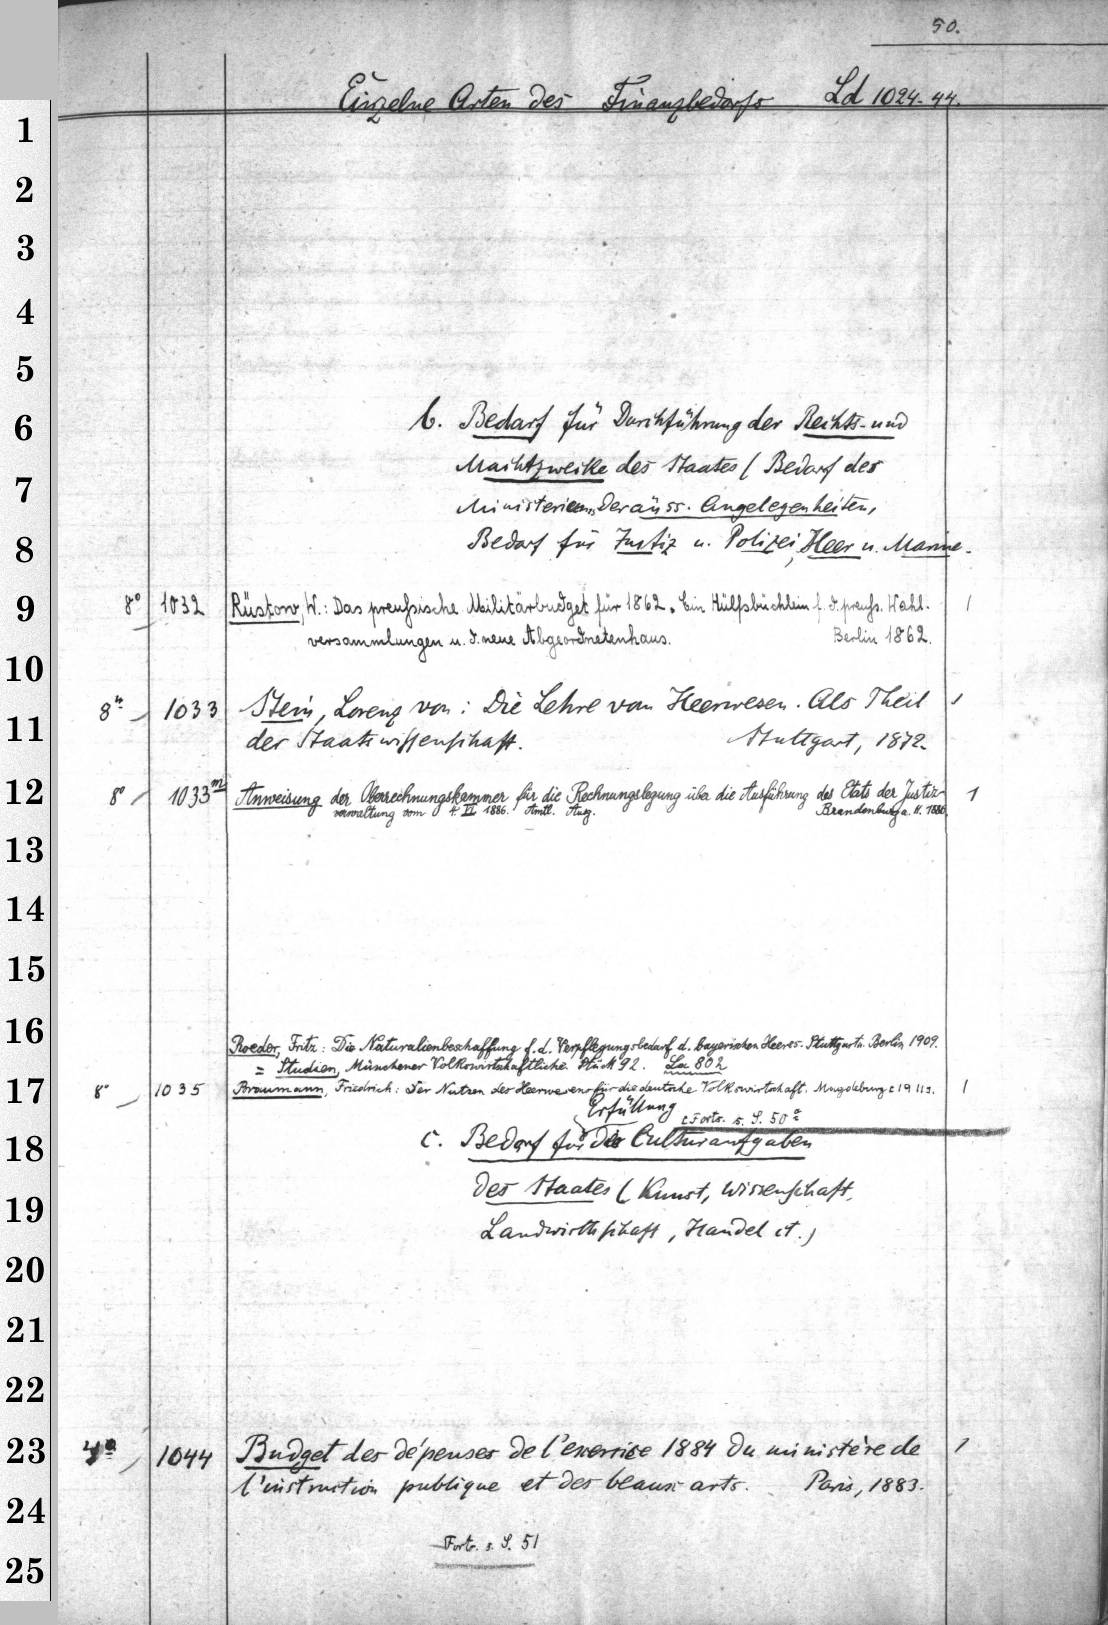 50.
Einzelne Arten des Finanzbedarfs Ld 1024-44.
1
2
3
4
5
6
b. Bedarf für Durchführung der Rechts- und
Machtzwecke des Staates (Bedarf des
7
Ministeriums der äuss. Angelegenheiten,
8
Bedarf für Justiz u. Polizei, Heer u. Marine.
9
8° 1032 Rüstow, W.: Das preußische Militärbudget für 1862. Ein Hülfsbüchlein f. d. preuß. Wahl- 1
versammlungen u. d. neue Abgeordnetenhaus. Berlin 1862.
10
8° 1033 Stein, Lorenz von: Die Lehre vom Heerwesen. Als Theil 1
11
der Staatswissenschaft. Stuttgart, 1872.
12
8° 1033m Anweisung der Oberrechnungskammer für die Rechnungslegung über die Ausführung des Etats der Justiz- 1
verwaltung vom 4. II 1886. Amtl. Ausg. Brandenburg a. H. 1886.
13
14
15
16
Roeder, Fritz: Die Naturalienbeschaffung f. d. Verpflegungsbedarf d. bayerischen Heeres. Stuttgart u. Berlin 1909.
= Studien, Münchener Volkswirtschaftliche Stück 92. La 802
17
8° 1035 Braumann, Friedrich: Der Nutzen des Heerwesens für die deutsche Volkswirtschaft. Magdeburg c 1911. 1
Erfüllung
c Forts. s. S. 50a
18
c. Bedarf für die Culturaufgaben
19
des Staates (Kunst, Wissenschaft,
Landwirthschaft, Handel ct.)
20
21
22
23
4° 1044 Budget des dépenses de l'exercice 1884 du ministère de 1
l'instruction publique et des beaux arts. Paris, 1883.
24
Forts. s. S. 51
25